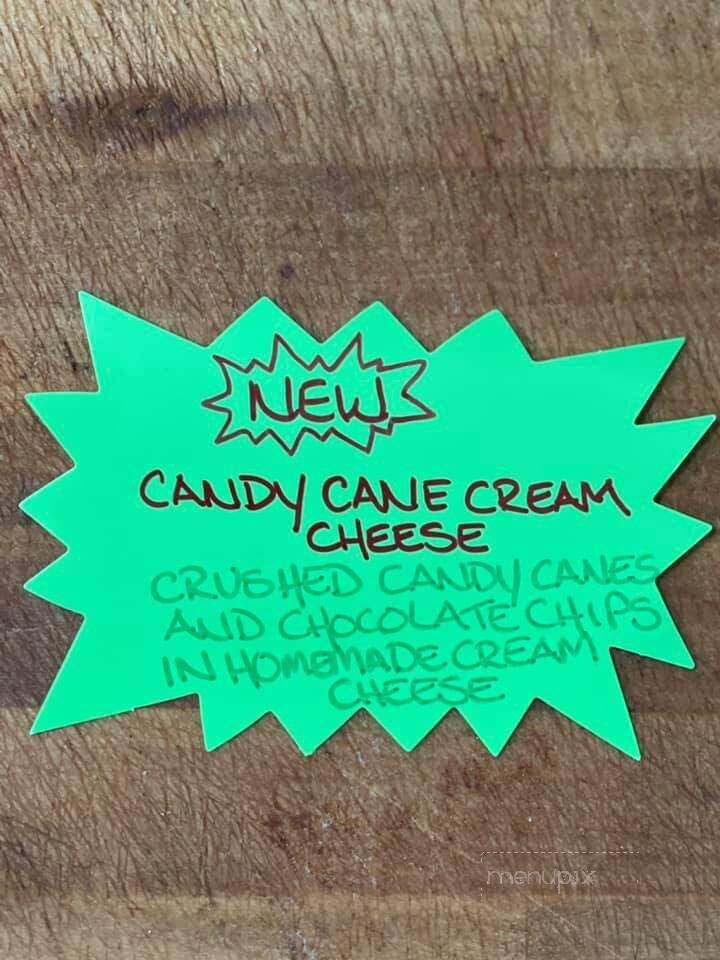 NEW
CANDY CANE CREAM
CHEESE
CRUSHED CANDY CANES
AND CHOCOLATE CHIPS
IN HOMEMADE CREAM
CHEESE
menupix